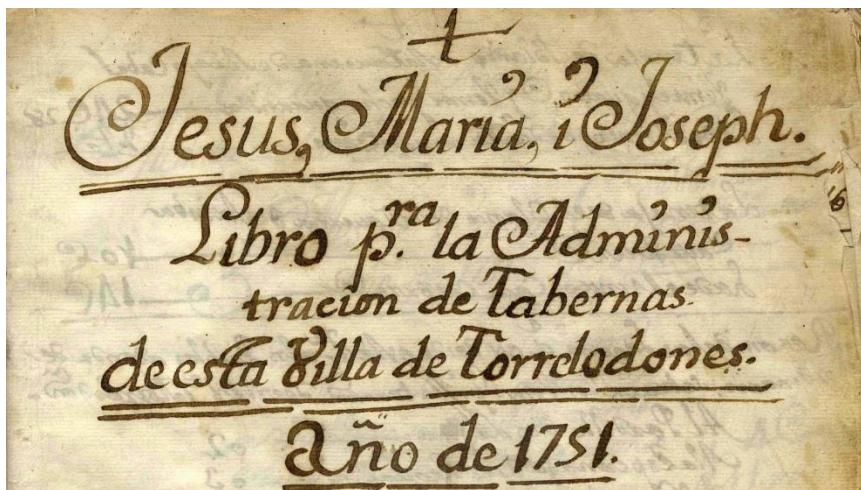 Jesus, Maria, i Joseph.
Libro p.ra la Adminis-
tracion de Tabernas
de esta Villa de Torrelodones.
Año de 1751.